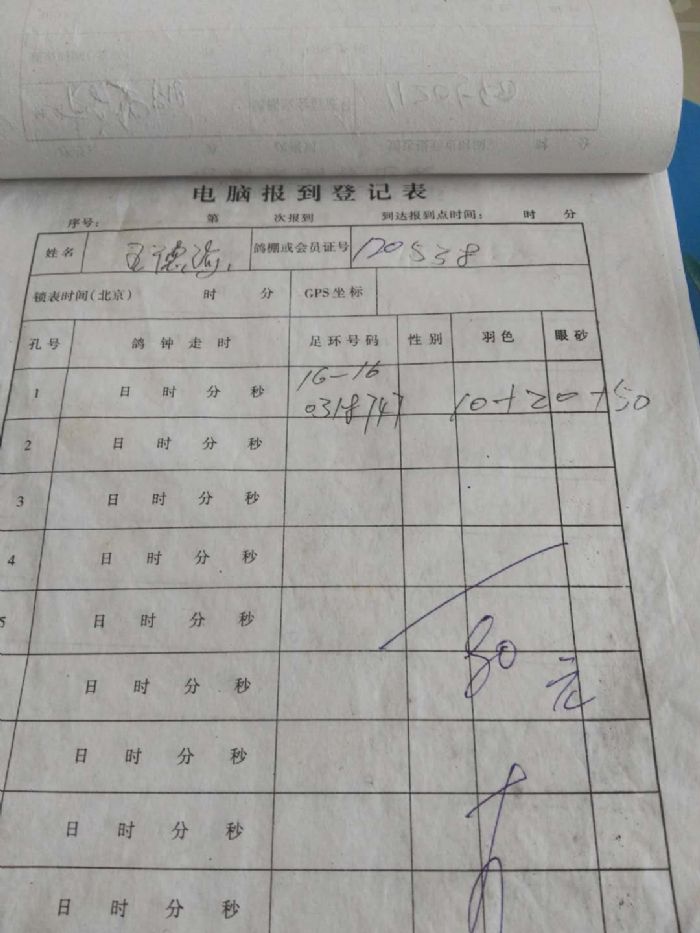 电脑报到登记表
序号： 第 次报到 到达报到点时间： 时 分
姓名 王德海 鸽棚或会员证号 120538
锁表时间（北京） 时 分 GPS坐标
孔号 鸽钟走时 足环号码 性别 羽色 眼砂
1 日 时 分 秒 16-16
0318747 10+20+50
2 日 时 分 秒
3 日 时 分 秒
4 日 时 分 秒
5 日 时 分 秒
80元
日 时 分 秒
日 时 分 秒
日 时 分 秒
日 时 分 秒